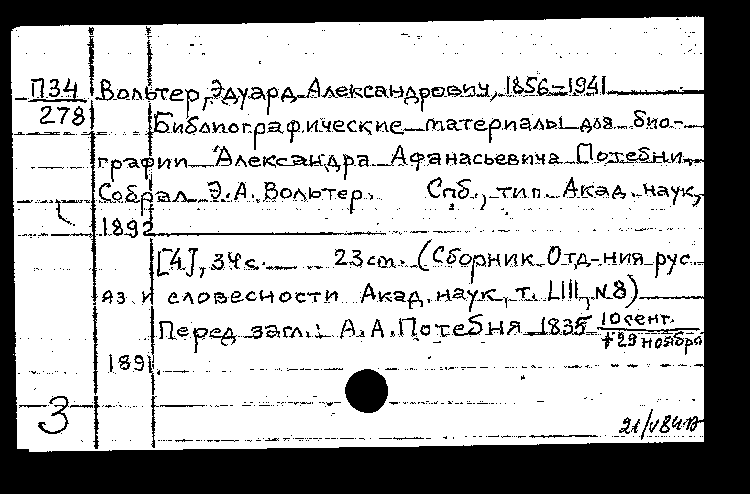 П34 Вольтер, Эдуард Александрович, 1856-1941
278 Библиографические материалы для био-
графии Александра Афанасьевича Потебни.
Собрал Э.А. Вольтер. Спб., тип. Акад. наук,
1892
[4], 34 с. 23 cm. (Сборник Отд-ния рус
яз и словесности Акад. наук, т. LIII, №8)
Перед загл.: А.А. Потебня 1835 10 сент.
† 29 ноября
1891.
3